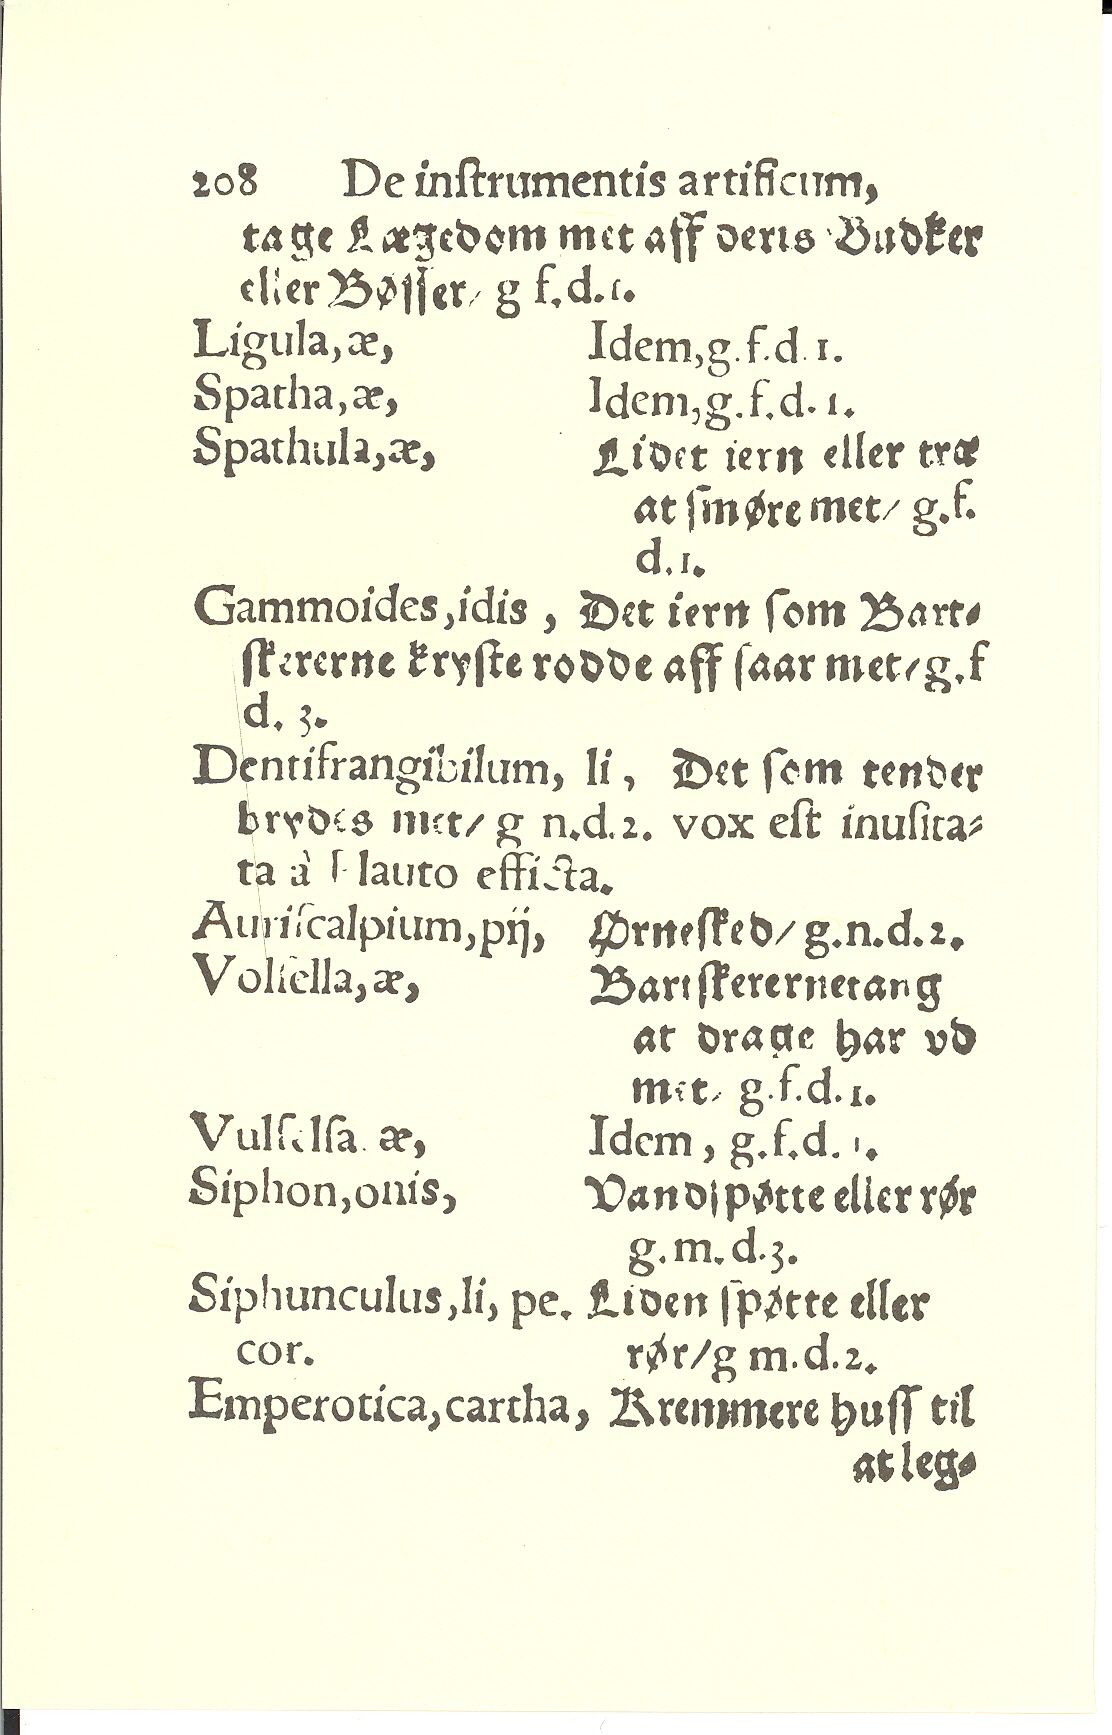 208 De inſtrumentis artificum,
tage Lægedom met aff deris Budker
eller Bøſſer/ g f.d.1.
Ligula,æ, Idem,g.f.d.1.
Spatha,æ, Idem,g.f.d.1.
Spathula,æ, Lidet iern eller træ
at ſmøre met/ g.f.
d.1.
Gammoides,idis , Det iern ſom Bart⸗
ſkererne kryſte rodde aff ſaar met/g.f
d. 3.
Dentifrangibilum, li , Det ſom tender
brydes met/ g n.d.2. vox eſt inuſita⸗
ta à Plauto efficta.
Auriſcalpium,pij, Ørneſked/ g.n.d.2.
Volſella,æ, Bartſkerernetang
at drage har vd
met/ g.f.d.1.
Vulſelſa æ, Idem , g.f.d.1.
Siphon,onis, Vandſpøtte eller rør
g.m.d.3.
Siphunculus,li, pe. Liden ſpøtte eller
cor. rør/g m.d.2.
Emperotica,cartha, Kremmere huſſ til
at leg⸗